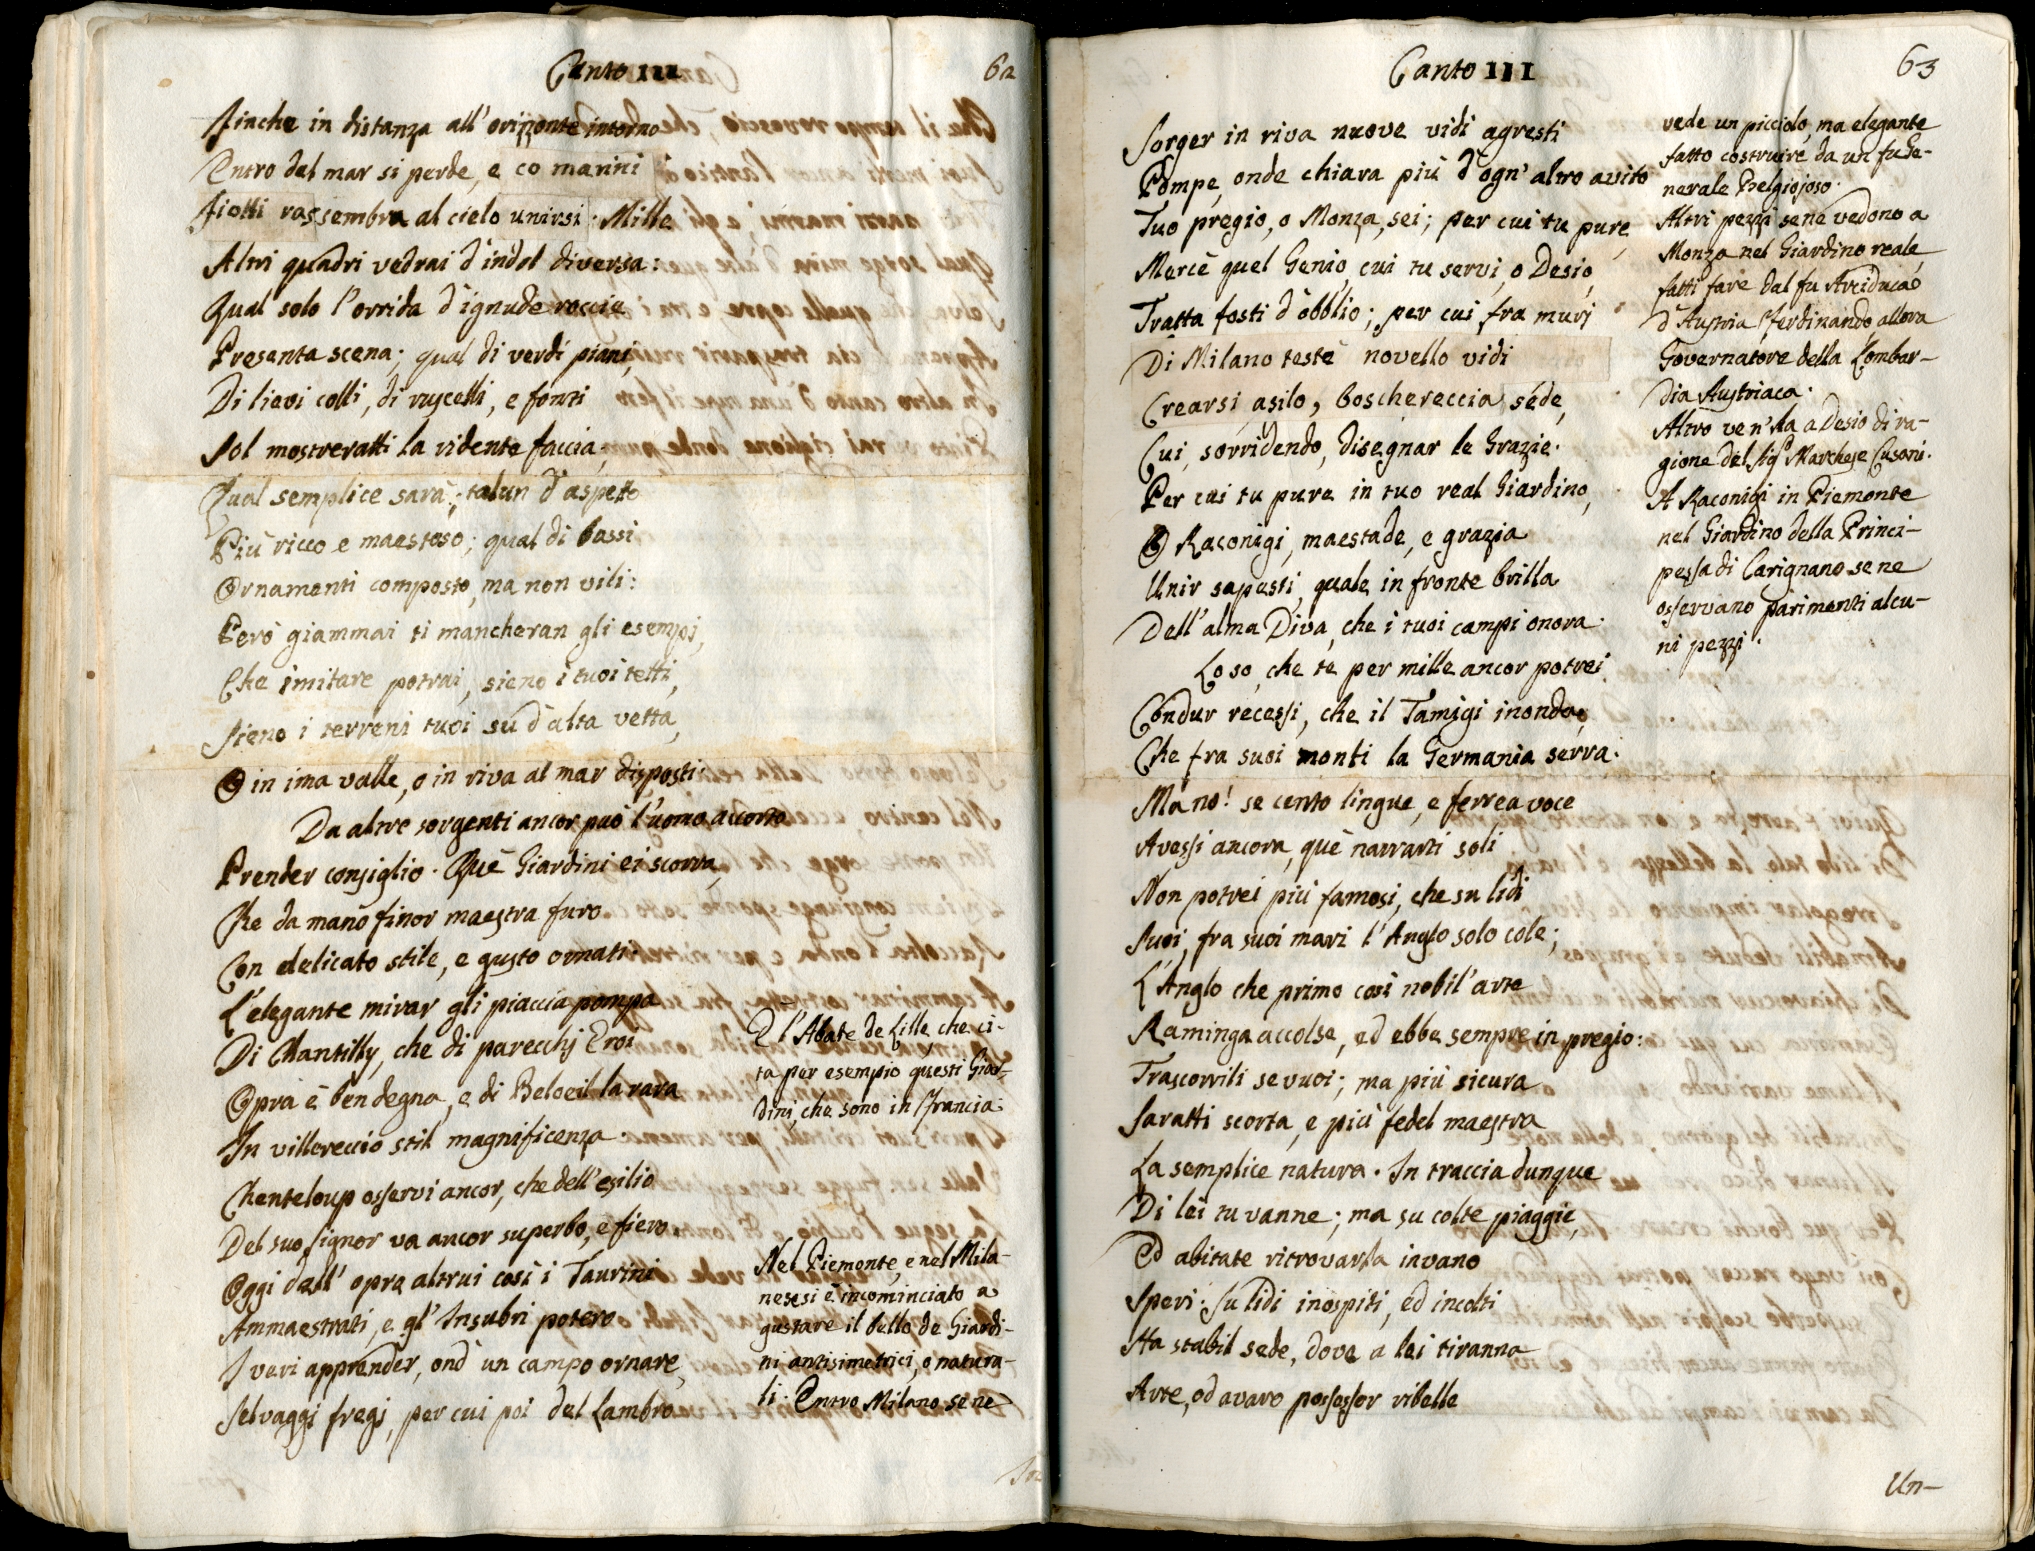 Canto III
62
Finche in distanza all'orizzonte intorno
Entro del mar si perde, e co marini
Fiotti rassembra al cielo unirsi. Mille
Altri quadri vedrai d'indol diversa:
Qual solo l'orrida d'ignude roccie
Presenta scena; qual di verdi piani,
Di lievi colli, di ruscelli, e fonti
Sol mostreratti la ridente faccia;
Qual semplice sarà; talun d'aspetto
Più ricco e maestoso; qual di bassi
Ornamenti composto, ma non vili:
Però giammai ti mancheran gli esempj,
Che imitare potrai, sieno i tuoi tetti,
Sieno i terreni tuoi su d'alta vetta,
O in ima valle, o in riva al mar disposti.
Da altre sorgenti ancor può l'uomo accorto
Prender consiglio. Què Giardini ei scorra,
Che da mano finor maestra furo
Con delicato stile, e gusto ornati.
L'elegante mirar gli piaccia pompa
Di Chantilly, che di parecchj Eroi
Opra è ben degna, e di Beloeil la rara
In villereccio stil magnificenza.
Chenteloup osservi ancor, che dell'esilio
Del suo signor va ancor superbo, e fiero.
Oggi dall'opra altrui così i Taurini
Ammaestrati, e gl'Insubri potero
I veri apprender, ond'un campo ornare,
Selvaggi fregi, per cui poi del Lambro
E l'Abate de Lille, che ci-
ta per esempio questi Giar-
dini, che sono in Francia.
Nel Piemonte, e nel Mila-
nese si è incominciato a
gustare il bello de Giardi-
ni antisimetrici, o natura-
li. Entro Milano se ne
Canto III
63
Sorger in riva nuove vidi agresti
Pompe, onde chiara più d'ogn'altro avito
Tuo pregio, o Monza, sei; per cui tu pure,
Mercè quel Genio, cui tu servi, o Desio,
Tratta fosti d'obblio; per cui fra muri
Di Milano testè novello vidi
Crearsi asilo, boschereccia sede,
Cui, sorridendo, disegnar le Grazie.
Per cui tu pure in tuo real Giardino,
O Raconigi, maestade, e grazia
Unir sapesti, quale in fronte brilla
Dell'alma Diva, che i tuoi campi onora.
Lo so, che te per mille ancor potrei
Condur recessi, che il Tamigi inonda,
Che fra suoi monti la Germania serra.
Ma no! se cento lingue, e ferrea voce
Avessi ancora, què narrarti soli
Non potrei più famosi, che su lidi
Suoi, fra suoi mari l'Anglo solo cole;
L'Anglo che primo così nobil'arte
Raminga accolse, ed ebbe sempre in pregio:
Trascorrili se vuoi; ma più sicura
Saratti scorta, e più fedel maestra
La semplice natura. In traccia dunque
Di lei tu vanne; ma su colte piaggie,
Ed abitate ritrovarla invano
Speri. Su lidi inospiti, ed incolti
Ha stabil sede, dove a lei tiranna
Arte, od avaro possessor ribelle
vede un picciolo, ma elegante
fatto costruire da un fu Ge-
nerale Belgiojoso.
Altri pezzi se ne vedono a
Monza nel Giardino reale,
fatti fare dal fu Arciduca
d'Austria Ferdinando allora
Governatore della Lombar-
dia Austriaca.
Altro ven'ha a Desio di ra-
gione del Sigr Marchese Cusani.
A Raconigi in Piemonte
nel Giardino della Princi-
pessa di Carignano se ne
osservano parimenti alcu-
ni pezzi.
Un-